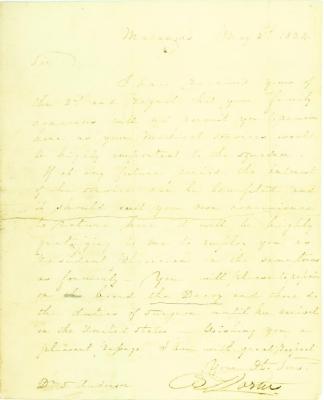 Matanzas May 2d 1824
Sir
I have received yours of
the 2d and regret that your family
concerns will not permit you to remain
here as your medical services would
be highly important to the squadron.
If at any future period the interest
of the service can be benefited and
it should suit your own convenience
to return here it will be highly
gratifying to me to employ you as
resident Physician in the
as formerly - You will please to
on board the Decoy and there do
the duties of Surgeon until her arrival
in the United States - Wishing you a
pleasant passage I am with great respect
Your Obt. Servt.
D Porter